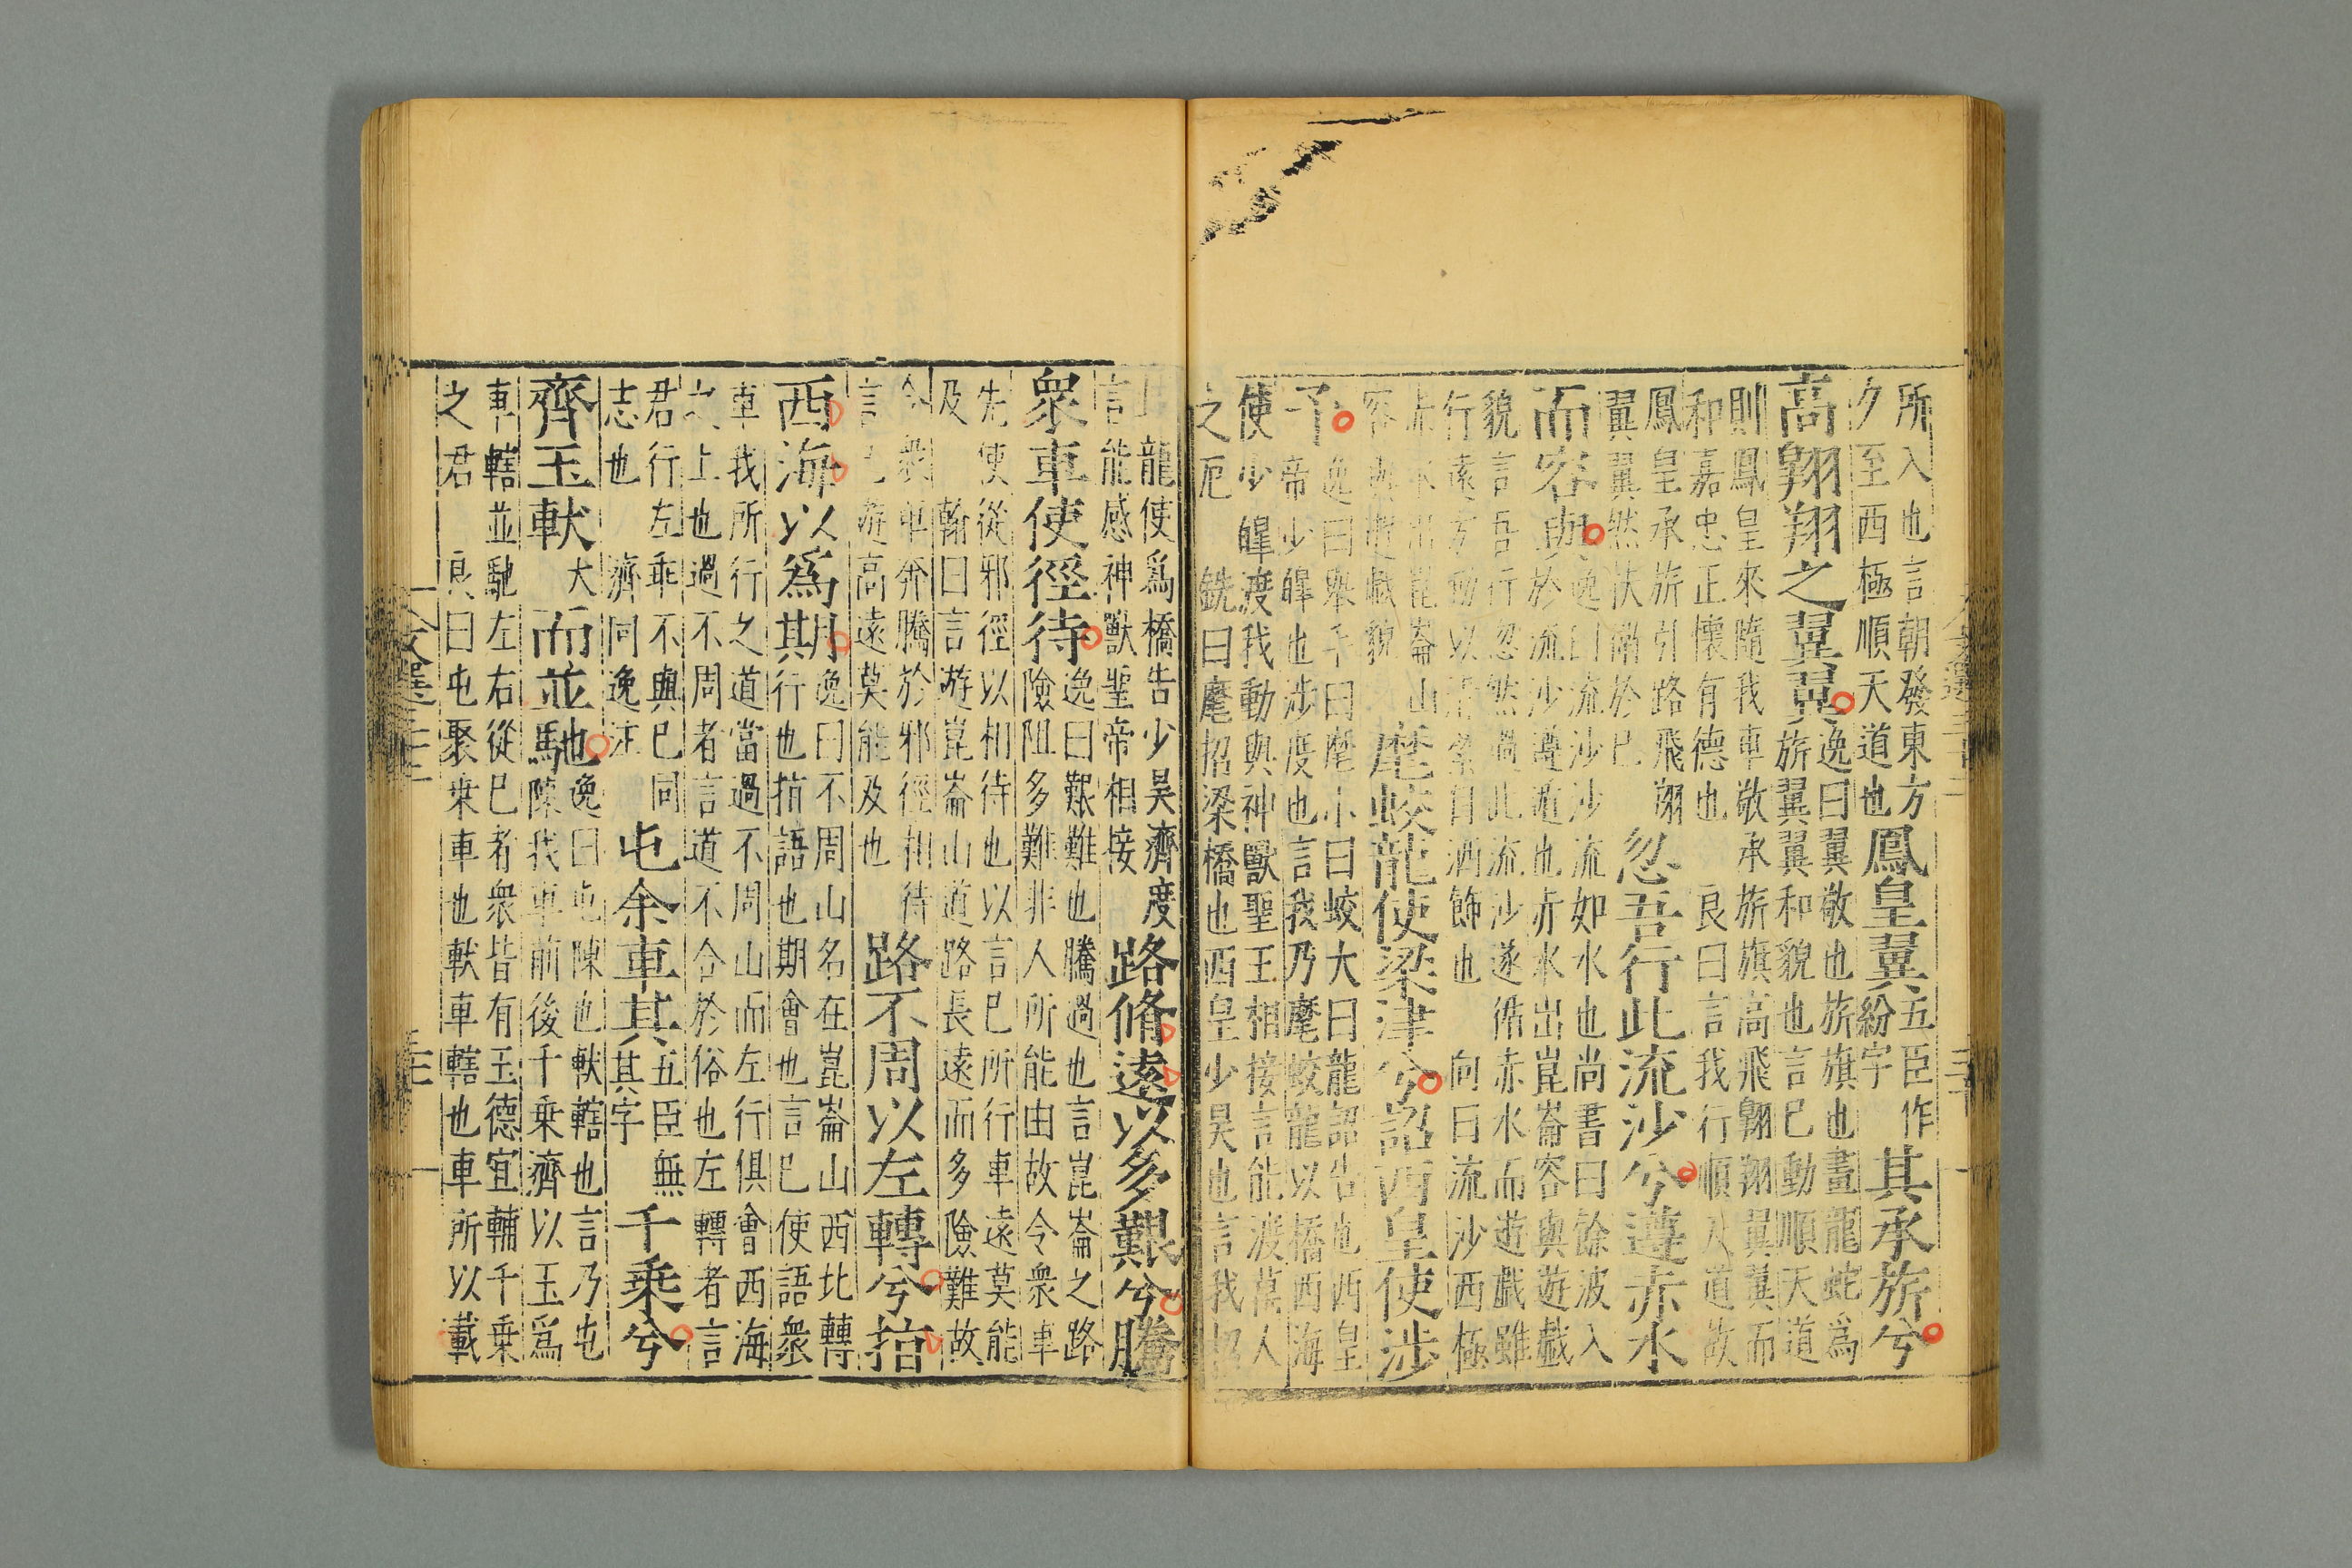 所入也言朝發東方
夕至西極順天道也
鳳皇翼
五臣作
紛字
其承旂兮
高翱翔之翼翼
逸曰翼敬也旂旗也畫龍蛇爲
旂翼翼和貌也言巳動順天道
則鳳皇來隨我車敬承旂旗高飛翱翔翼翼而
和嘉忠正懷有德也 良曰言我行順天道故
鳳皇承旂引路飛翔
翼翼然扶衞於巳
忽吾行此流沙兮遵赤水
而容與
逸曰流沙沙流如水也尚書曰餘波入
於流沙遵循也赤水出崑崙容與遊戲
貌言吾行忽然過此流沙遂循赤水而遊戲雖
行遠方動以清絜自洒飾也 向曰流沙西極
赤水出崑崙山
容與遊戲貌
麾蛟龍使梁津兮詔西皇使涉
予
逸曰舉手曰麾小曰蛟大曰龍詔告也西皇
帝少皥也涉度也言我乃麾蛟龍以橋西海
使少皥渡我動與神獸聖王相接言能渡萬人
之厄 銑曰麾招梁橋也西皇少昊也言我招
龍使爲橋告少昊濟度
言能感神獸聖帝相接
路脩遠以多艱兮騰
衆車使徑待
逸曰艱難也騰過也言崑崙之路
險阻多難非人所能由故令衆車
先使從邪徑以相待也以言巳所行車遠莫能
及 翰曰言遊崑崙山道路長遠而多險難故
令衆車奔騰於邪徑相待
言巳遊高遠莫能及也
路不周以左轉兮指
西海以爲期
逸曰不周山名在崑崙山西北轉
行也指語也期會也言巳使語衆
車我所行之道當過不周山而左行俱會西海
之上也過不周者言道不合於俗也左轉者言
君行左乖不與巳同
志也 濟同逸注
屯余車其
五臣無
其字
千乗兮
齊玉軑
大
而並馳
逸曰屯陳也軑轄也言乃屯
陳我車前後千乗齊以玉爲
車轄並馳左右從巳者衆皆有玉德宜輔千乗
之君 良曰屯聚來車也軑車轄也車所以載